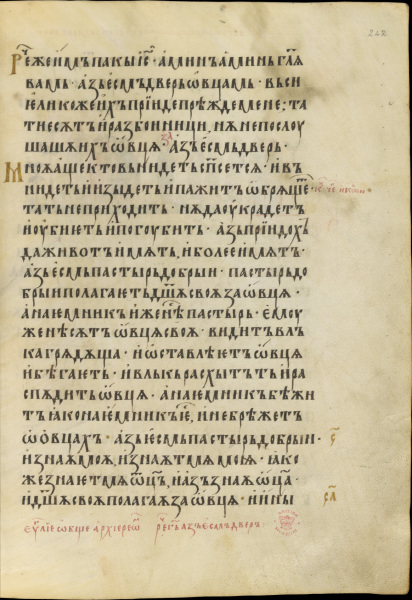 Рече же имъ пакы іс҃ · аминъ аминь гл҃ѧ
вамь · азь есмъ дверь ѡвцамь · вьси
елико же ихъ прїиде прѣжде мене; та
тие сѫть и разбоиници, нѫ не послоу
шашѫ ихъ ѡвцѧ · Азь есмь дверь ·
Мноѫ аще кто вьнидеть сп҃сется · и вь
нидеть и изыдеть и пажить ѡбрѧщеть
тать не приходить · нѫ да оукрадетъ
и оубиеть и погоубить · азь прїидохъ
да животъ имѫть, и более имѫтъ ·
азь есмь пастырь добрыи · пастырь до
брыи полагаеть дш҃ѫ своѫ за ѡвцѧ ·
а наемникъ иже нѣ пастырь · емоу
же не сѫтъ ѡвцѧ своѧ · видитъ влъ
ка грѧдѫща · и ѡставлѣетъ ѡвцѧ
и бѣгаеть · и влькь расхытить и ра
спѫдить ѡвцѧ · а наемникъ бѣжи
тъ ꙗко наемникъ е҃, и не брѣжетъ
ѡ ѡвцахъ · азь есмь пастырь добрыи ·
и знаѫ моѫ, и знаѫт мѧ моѧ · ꙗко
же знает мѧ ѡц҃ъ, и азъ знаѫ ѡц҃а ·
и дш҃ѫ своѫ полагаѫ за ѡвцѧ · и ины
еѵ҃лїе ѡбще архїерео҄ · рече г҃ь азъ есмъ дверь ·